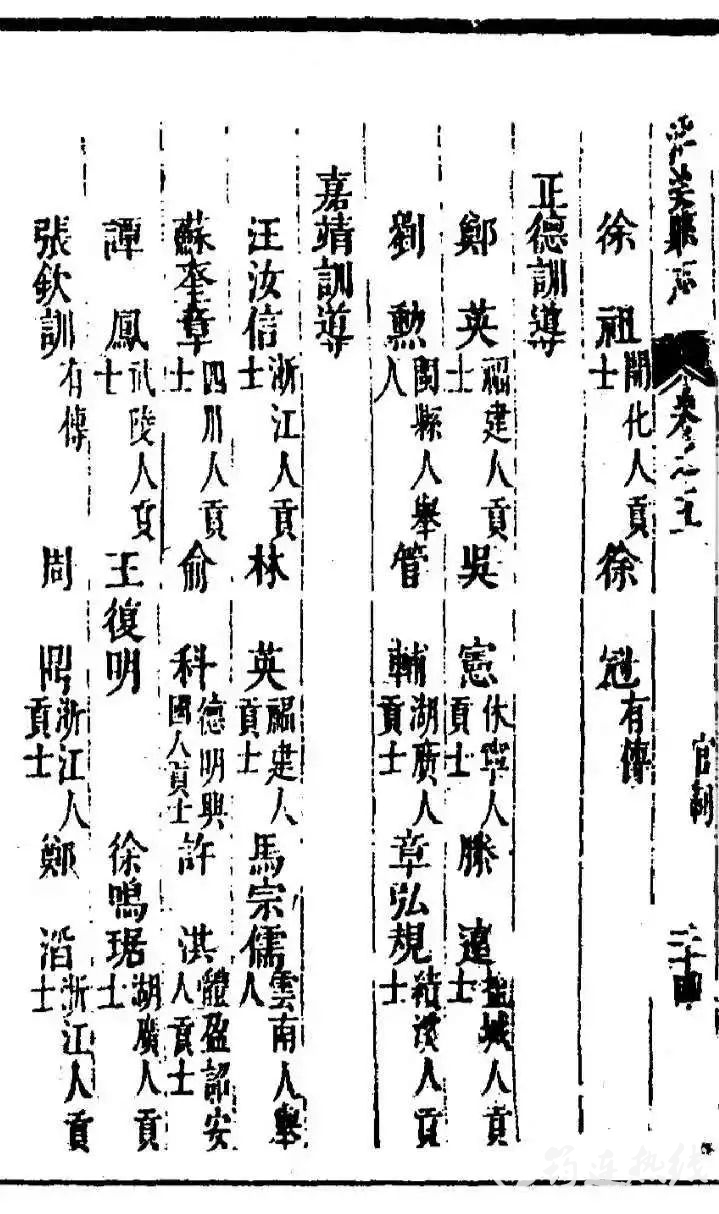 縣志 卷之五 官制 二十四
徐祖 開化人貢士 徐冠 有傳
正德訓導
鄭英 福建人貢士 吳憲 休寧人貢士 滕遠 鹽城人貢士
劉勲 閩縣人舉人 管輔 湖廣人貢士 章弘規 績溪人貢士
嘉靖訓導
汪汝信 浙江人貢士 林英 福建人貢士 馬宗儒 雲南人舉人
蘇奎章 四川人貢士 俞科 德明興國人貢士 許洪 體盈詔安人貢士
譚鳳 武陵人貢士 王復明 徐鳴琚 湖廣人貢士
張欽訓 有傳 周鼎 浙江人貢士 鄭湝 浙江人貢士
筠连热线